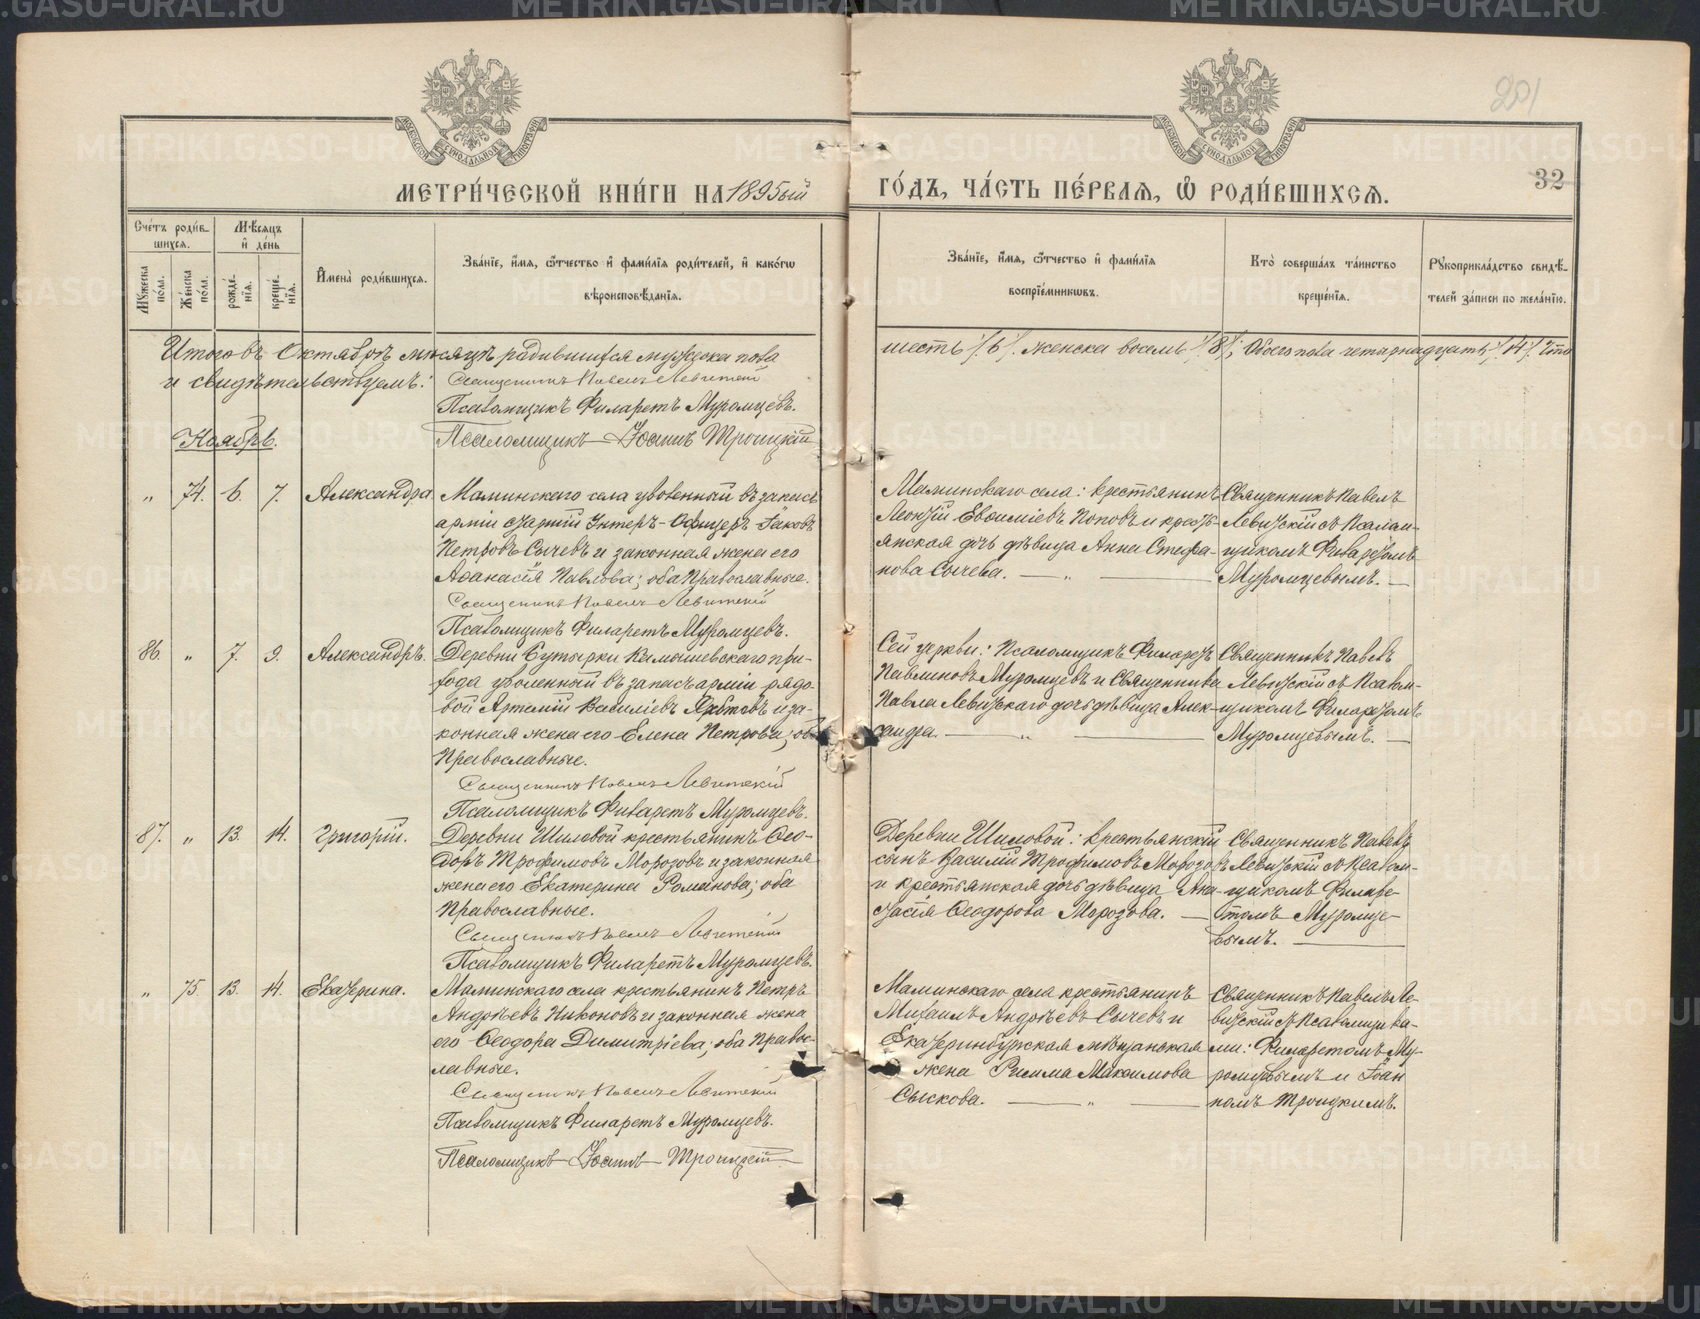 METRIKI.GASU-URAL.RU
201
МОСКОВСКОЙ СѴНОДАЛЬНОЙ ТИПОГРАФІИ
МОСКОВСКОЙ СѴНОДАЛЬНОЙ ТИПОГРАФІИ
МЕТРИ́ЧЕСКОЙ КНИ́ГИ НА 1895ый
ГО́ДЪ, ЧА́СТЬ ПЕ́РВАЯ, Ѡ РОДИ́ВШИХСЯ.
32
Сче́тъ роди́в-
шихся.
Мѣ́сяцъ
и де́нь
Мꙋ́жеска по́ла.
Же́нска по́ла.
рожде́-нїя.
креще́-нїя.
Имена̀ роди́вшихся.
Зва́нїе, и́мя, ѻ́тчество и фами́лїя роди́телей, и како́гѡ
вѣроисповѣ́данїя.
Зва́нїе, и́мя, ѻ́тчество и фами́лїя
воспрїе́мникѡвъ.
Кто̀ соверша́лъ та́инство
креще́нїя.
Рꙋкоприкла́дство свидѣ́-
телей за́писи по жела́нїю.
Итого въ Октябрѣ мѣсяцѣ родившихся мужеска пола
шесть /6/. женска восемь /8/; Обоего пола четырнадцать /14/. Что
и свидѣтельствуемъ:
Священникъ Павелъ Левитскій
Псаломщикъ Филаретъ Муромцевъ.
Ноябрь.
Псаломщикъ Іоаннъ Троицкій
„ 74. 6. 7. Александра
Маминскаго села уволенный въ запасъ
арміи старшій Унтеръ-Офицеръ Іаковъ
Петровъ Сычевъ и законная жена его
Аѳанасія Павлова; оба Православные.
Священникъ Павелъ Левитскій
Псаломщикъ Филаретъ Муромцевъ.
Маминскаго села: крестьянинъ
Леонтій Евѳиміевъ Поповъ и кресть-
янская дочь дѣвица Анна Стефа-
нова Сычева. — „ —
Священникъ Павелъ
Левитскій съ Псалом-
щикомъ Филаретомъ
Муромцевымъ. —
86. „ 7. 9. Александръ.
Деревни Бутырки Камышевскаго при-
хода уволенный въ запасъ арміи рядо-
вой Артемій Василіевъ и за-
конная жена его Елена Петрова; оба
Православные.
Священникъ Павелъ Левитскій
Псаломщикъ Филаретъ Муромцевъ.
Сей церкви: Псаломщикъ Филаретъ
Павлиновъ Муромцевъ и Священника
Павла Левитскаго дочь дѣвица Алек-
сандра. — „ —
Священникъ Павелъ
Левитскій съ Псалом-
щикомъ Филаретомъ
Муромцевымъ. —
87. „ 13. 14. Григорій.
Деревни Шиловой крестьянинъ Ѳео-
доръ Трофимовъ Морозовъ и законная
жена его Екатерина Романова; оба
Православные.
Священникъ Павелъ Левитскій
Псаломщикъ Филаретъ Муромцевъ.
Деревни Шиловой: крестьянскій
сынъ Василій Трофимовъ Морозовъ
и крестьянская дочь дѣвица Ана-
стасія Ѳеодорова Морозова. —
Священникъ Павелъ
Левитскій съ Псалом-
щикомъ Филаре-
томъ Муромце-
вымъ. —
„ 75. 13. 14. Екатерина.
Маминскаго села крестьянинъ Петръ
Андреевъ Никоновъ и законная жена
его Ѳеодора Димитріева; оба Правос-
лавные.
Священникъ Павелъ Левитскій
Псаломщикъ Филаретъ Муромцевъ.
Псаломщикъ Іоаннъ Троицкій
Маминскаго села крестьянинъ
Михаилъ Андреевъ Сычевъ и
Екатеринбургская мѣщанская
жена Римма Максимова
Сыскова. — „ —
Священникъ Павелъ Ле-
витскій съ Псаломщика-
ми: Филаретомъ Му-
ромцевымъ и Іоан
номъ Троицкимъ.